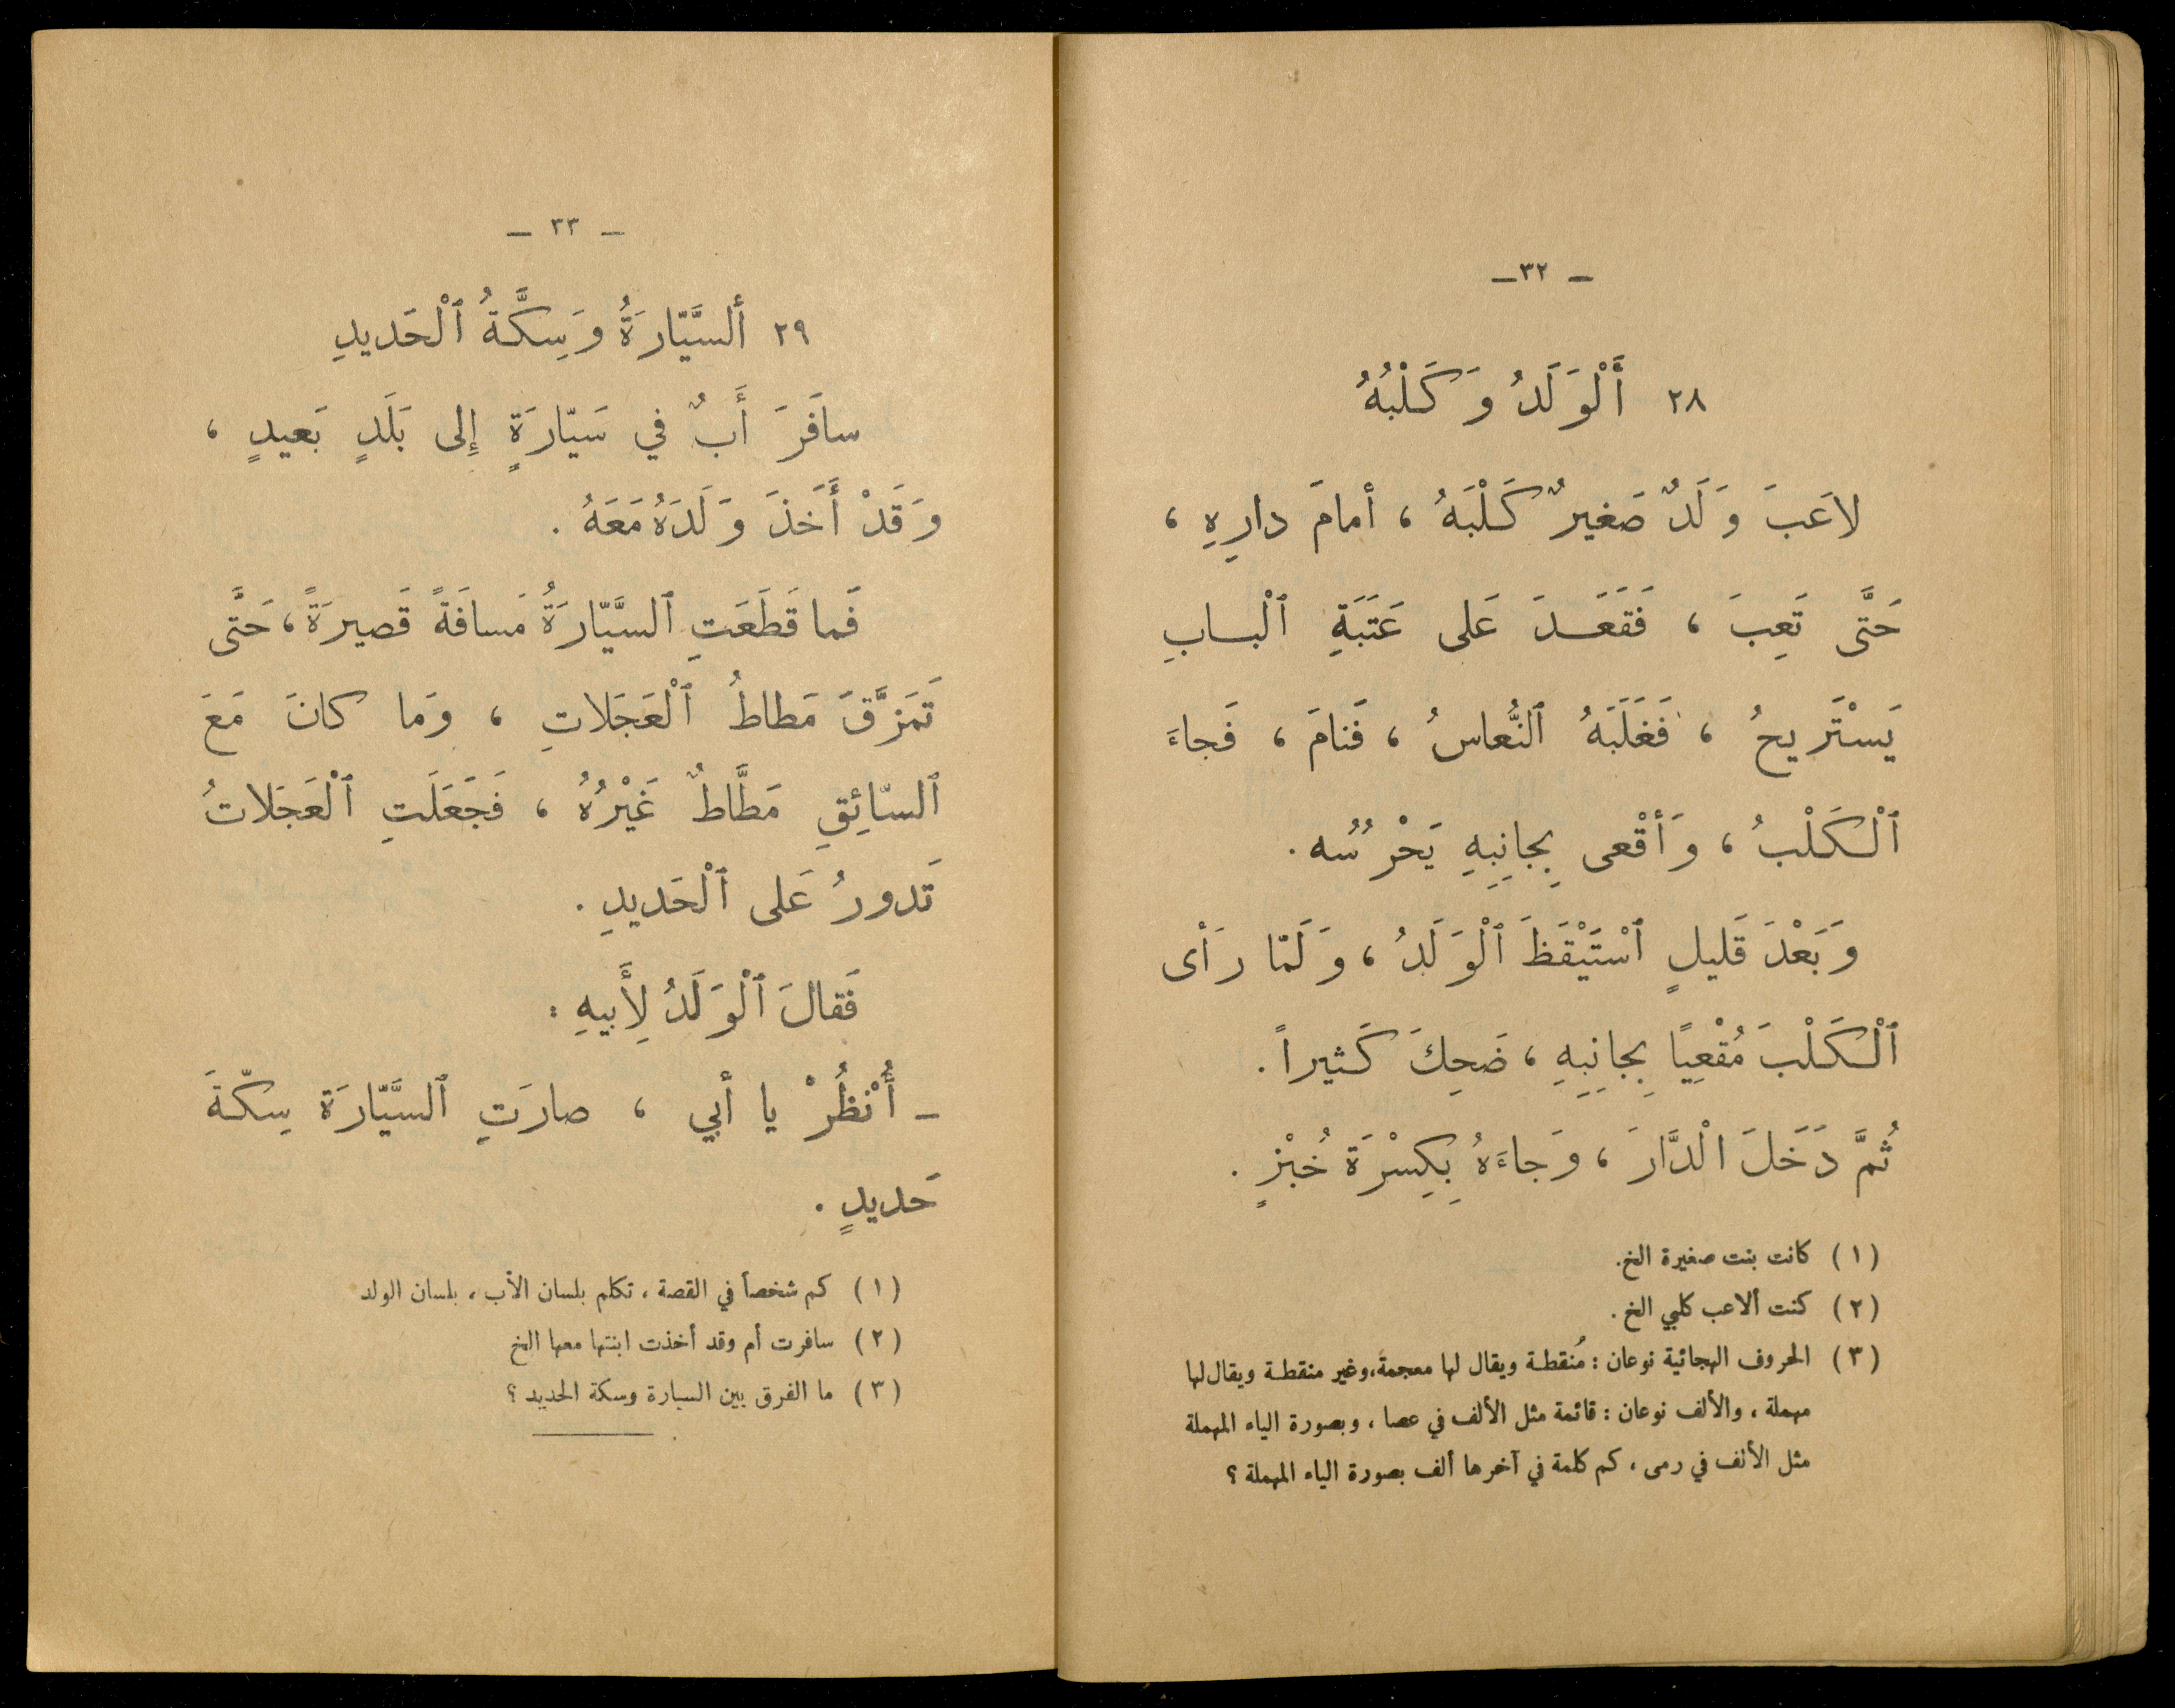 – ٣٢ –
٢٨ أَلْوَلَدُ وَكَلْبُهُ
لاعَبَ وَلَدٌ صَغيرٌ كَلْبَهُ ، أمامَ دارِهِ ،
حَتَّى تَعِبَ ، فَقَعَـدَ عَلى عَتَبَةِ ٱلْبـابِ
يَسْتَريحُ ، فَغَلَبَهُ ٱلنُّعاسُ ، فَنامَ ، فَجاءَ
ٱلْكَلْبُ ، وَأَقْعى بِجانِبِهِ يَحْرُسُه .
وَبَعْدَ قَليلٍ ٱسْتَيْقَظَ ٱلْوَلَدُ ، وَلَمّا رَأى
ٱلْكَلْبَ مُقْعِيًا بِجانِبِهِ ، ضَحِكَ كَثيراً .
ثُمَّ دَخَلَ الْدَّارَ ، وَجاءَهُ بِكِسْرَةِ خُبْزٍ .
(١) كانت بنت صغيرة الخ .
(٢) كنت ألاعب كلبي الخ .
(٣) الحروف الهجائية نوعان : مُنقطـة ويقال لها معجمة ، وغير منقطـة ويقال لها
مهملة ، والألف نوعان : قائمة مثل الألف في عصا ، وبصورة الياء المهملة
مثل الألف في رمى ، كم كلمة في آخرها ألف بصورة الياء المهملة ؟
– ٣٣ –
٢٩ ألسَّيّارَةُ وَسِكَّةُ ٱلْحَديدِ
سافَرَ أَبٌ في سَيّارَةٍ إِلى بَلَدٍ بَعيدٍ ،
وَقَدْ أَخَذَ وَلَدَهُ مَعَهُ .
فَما قَطَعَتِ ٱلسَّيّارَةُ مَسافَةً قَصيرَةً ، حَتَّى
تَمَزَّقَ مَطاطُ ٱلْعَجَلاتِ ، وَما كانَ مَعَ
ٱلسّائِقِ مَطَّاطٌ غَيْرُهُ ، فَجَعَلَتِ ٱلْعَجَلاتُ
تَدورُ عَلى ٱلْحَديدِ .
فَقالَ ٱلْوَلَدُ لِأَبيهِ :
– أُنْظُرْ يا أبي ، صارَتِ ٱلسَّيّارَة سِكّةَ
حَديدٍ .
(١) كم شخصاً في القصة ، تكلم بلسان الأب ، بلسان الولد
(٢) سافرت أم وقد أخذت ابنتها معها الخ
(٣) ما الفرق بين السيارة وسكة الحديد ؟